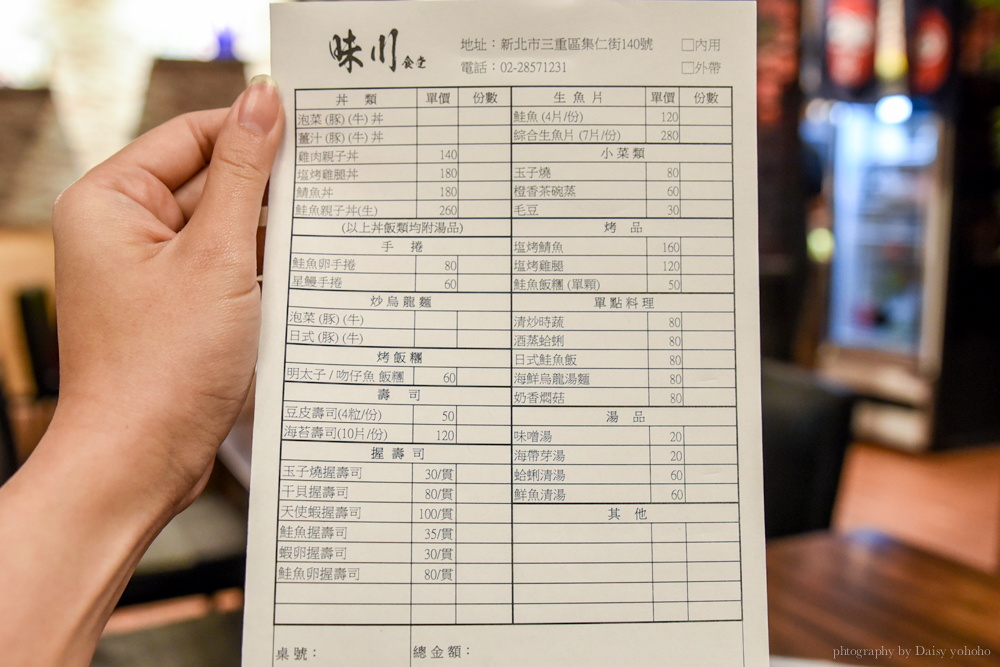 味川食堂
地址：新北市三重區集仁街140號
□內用
電話：02-28571231
□外帶
丼 類 單價 份數
泡菜(豚)(牛)丼
薑汁(豚)(牛)丼
雞肉親子丼 140
塩烤雞腿丼 180
鯖魚丼 180
鮭魚親子丼(生) 260
(以上丼飯類均附湯品)
手 捲
鮭魚卵手捲 80
星鰻手捲 60
炒烏龍麵
泡菜(豚)(牛)
日式(豚)(牛)
烤飯糰
明太子/吻仔魚 飯糰 60
壽 司
豆皮壽司(4粒/份) 50
海苔壽司(10片/份) 120
握壽司
玉子燒握壽司 30/貫
干貝握壽司 80/貫
天使蝦握壽司 100/貫
鮭魚握壽司 35/貫
蝦卵握壽司 30/貫
鮭魚卵握壽司 80/貫
生魚片 單價 份數
鮭魚(4片/份) 120
綜合生魚片(7片/份) 280
小菜類
玉子燒 80
橙香茶碗蒸 60
毛豆 30
烤 品
塩烤鯖魚 160
塩烤雞腿 120
鮭魚飯糰(單顆) 50
單點料理
清炒時蔬 80
酒蒸蛤蜊 80
日式鮭魚飯 80
海鮮烏龍湯麵 80
奶香燜菇 80
湯 品
味噌湯 20
海帶芽湯 20
蛤蜊清湯 60
鮮魚清湯 60
其 他
桌號：
總金額：
phtography by Daisy yohoho